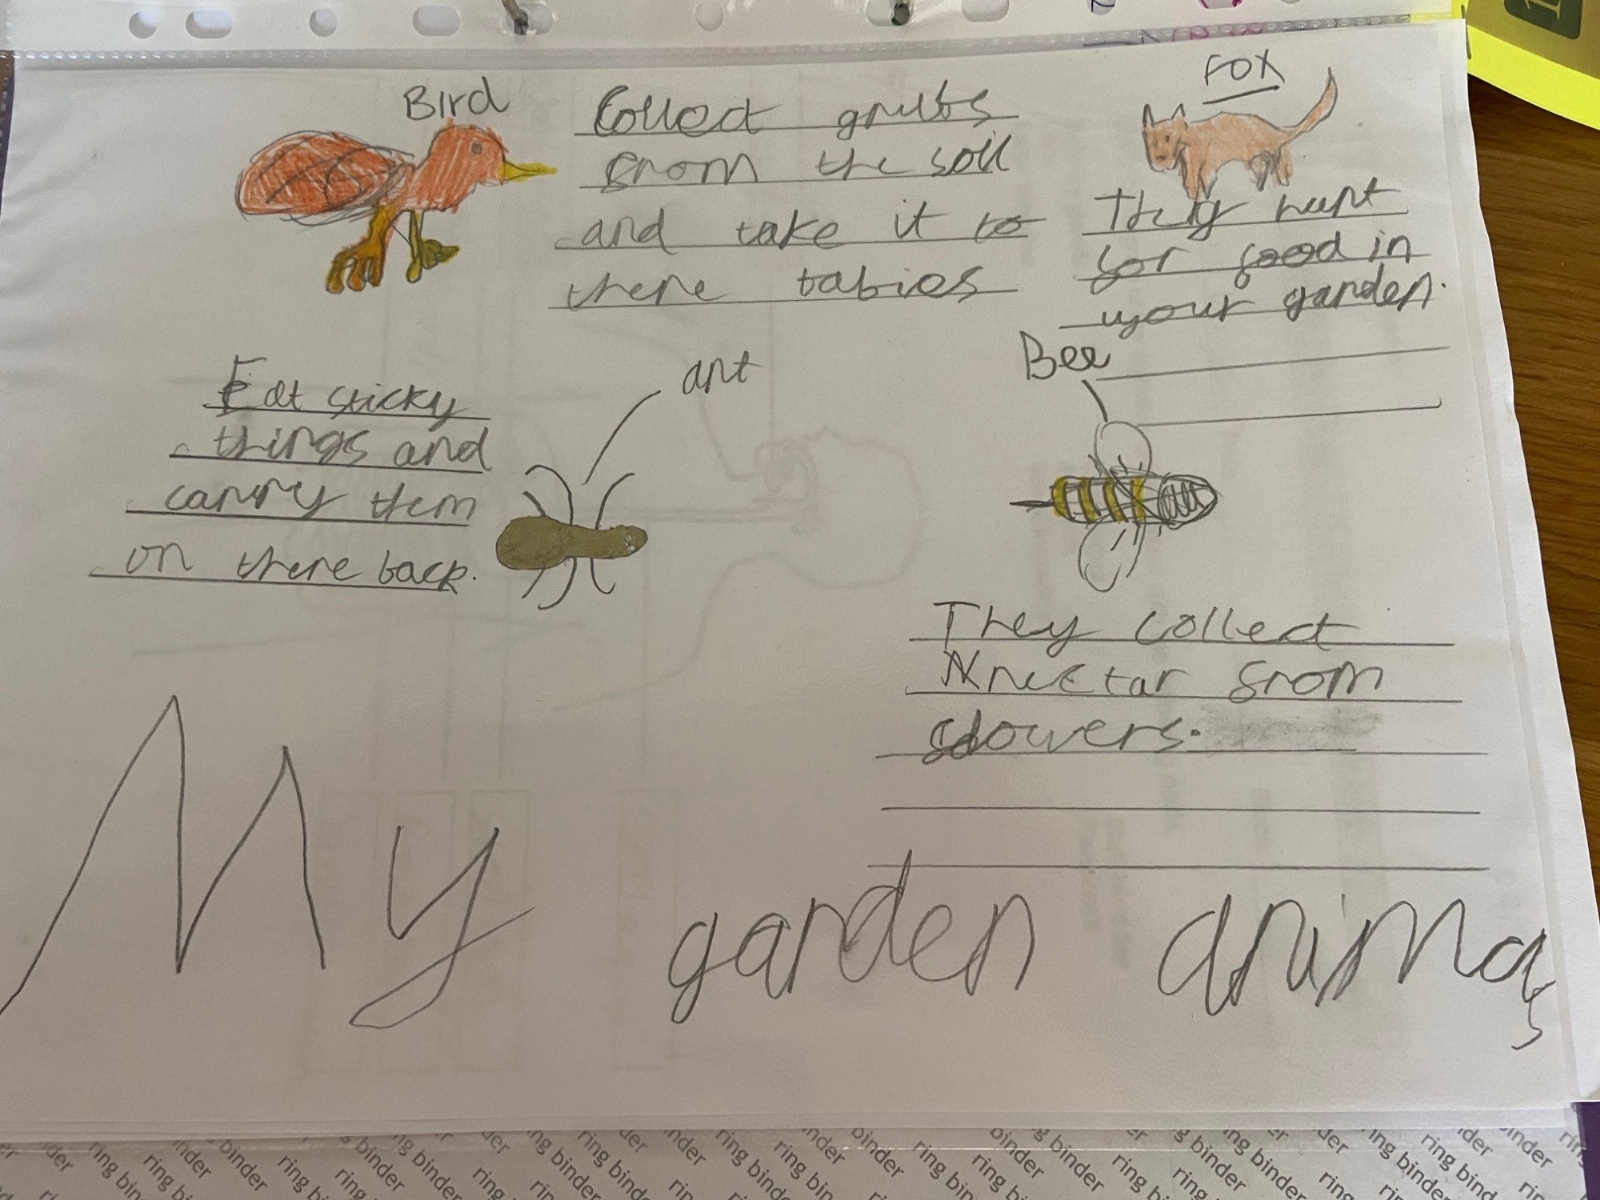 Bird
Collect grubs
from the soil
and take it to
there babies
FOX
They hunt
for food in
your garden.
Eat sticky
things and
carry them
on there back.
ant
Bee
They collect
nectar from
flowers.
My garden animals
ring binder ring binder ring binder ring binder ring binder ring binder ring binder ring binder